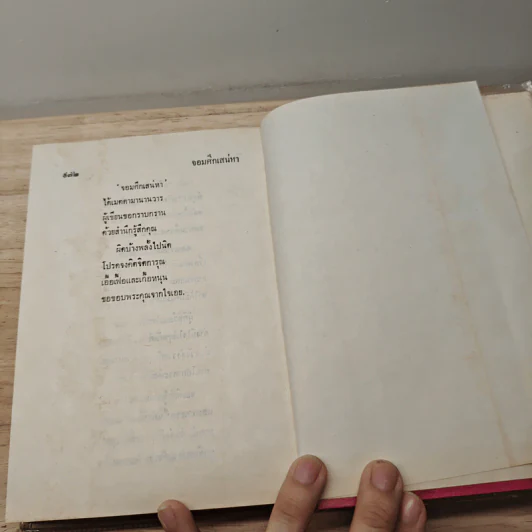 จอมศึกเสน่หา
"จอมศึกเสน่หา"
ได้เมตตามานานวาร
ผู้เขียนขอกราบกราน
ด้วยสำนึกรู้สึกคุณ
ผิดบ้างพลั้งไปนิด
โปรดจงคิดจิตการุณ
เอื้อเฟื้อและเกื้อหนุน
ขอขอบพระคุณจากใจเอย.